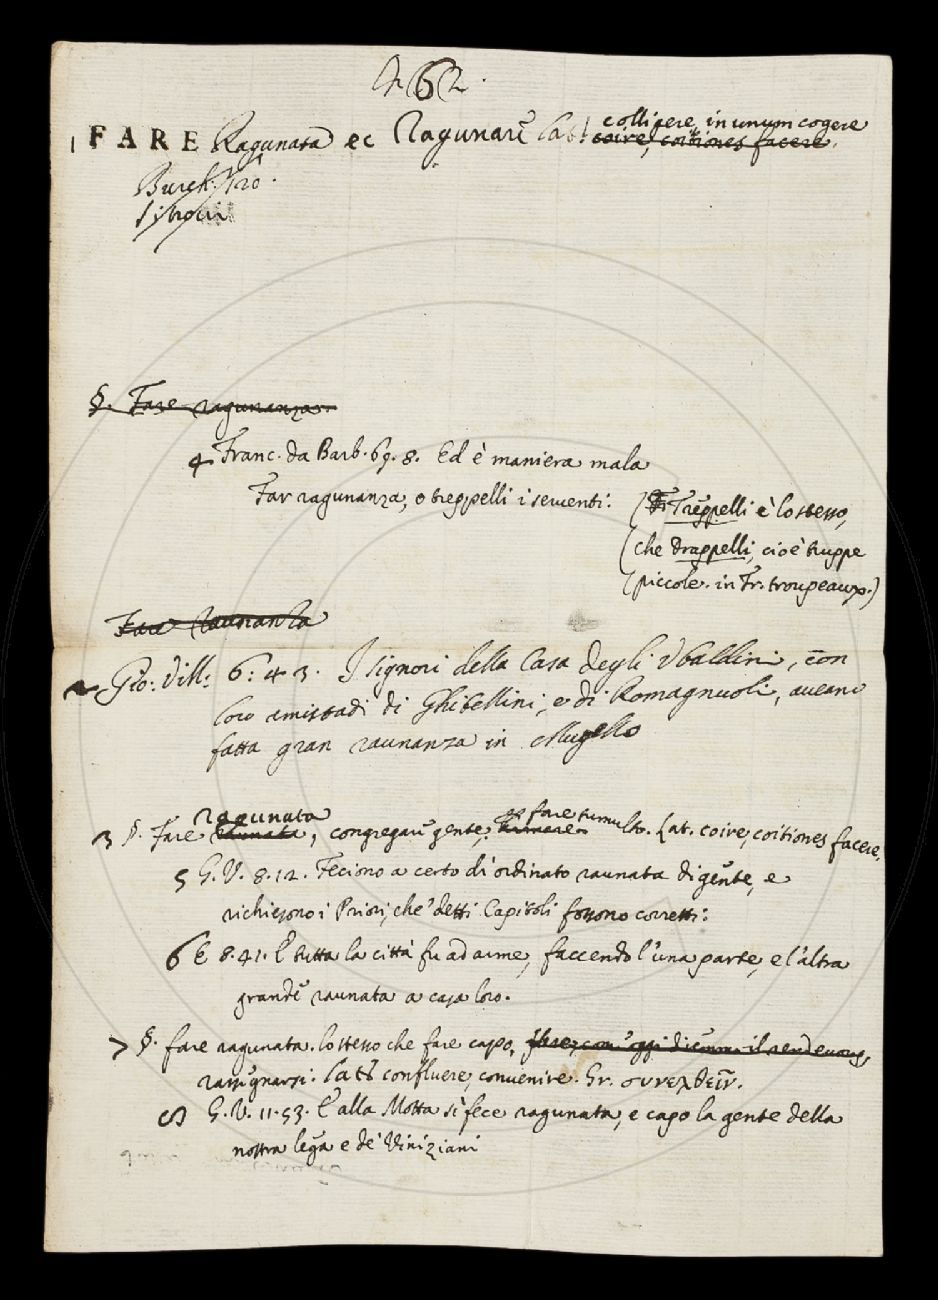 462.
colligere, in unum cogere
1 FARE Ragunata ec Ragunare Lat. coire, coitiones facere.
Burch. 120.
§. Fare ragunanza.
4 Franc. da Barb. 69. 8. Ed è maniera mala
Far ragunanza, o treppelli i serventi:
(Treppelli è lo stesso,
(che drappelli, cioè truppe
(piccole. in Fr. troupeaux.)
Fare raunanza
2 Gio: Vill: 6: 43. I signori della Casa degli Ubaldini, con
loro amistadi di Ghibellini, e di Romagnuoli, aveano
fatta gran raunanza in Mugello
ragunata fare tumulto. Lat. coire, coitiones facere.
3 §. Fare raunata, congregare gente,
5 G. V. 8. 12. Feciono a certo dì ordinato raunata di gente, e
richiesono i Priori, che' detti Capitoli fossono corretti:
6 E 8. 41. E tutta la città fu ad arme, faccendo l'una parte, e l'altra
grande raunata a casa loro.
7 §. fare ragunata. lo stesso che fare capo, come oggi diciamo il rendevous,
rassegnarsi: Lat. confluere, convenire. Gr. συνελθεῖν.
8 G. V. 11. 53. E alla Motta si fece ragunata, e capo la gente della
nostra lega e de' Viniziani